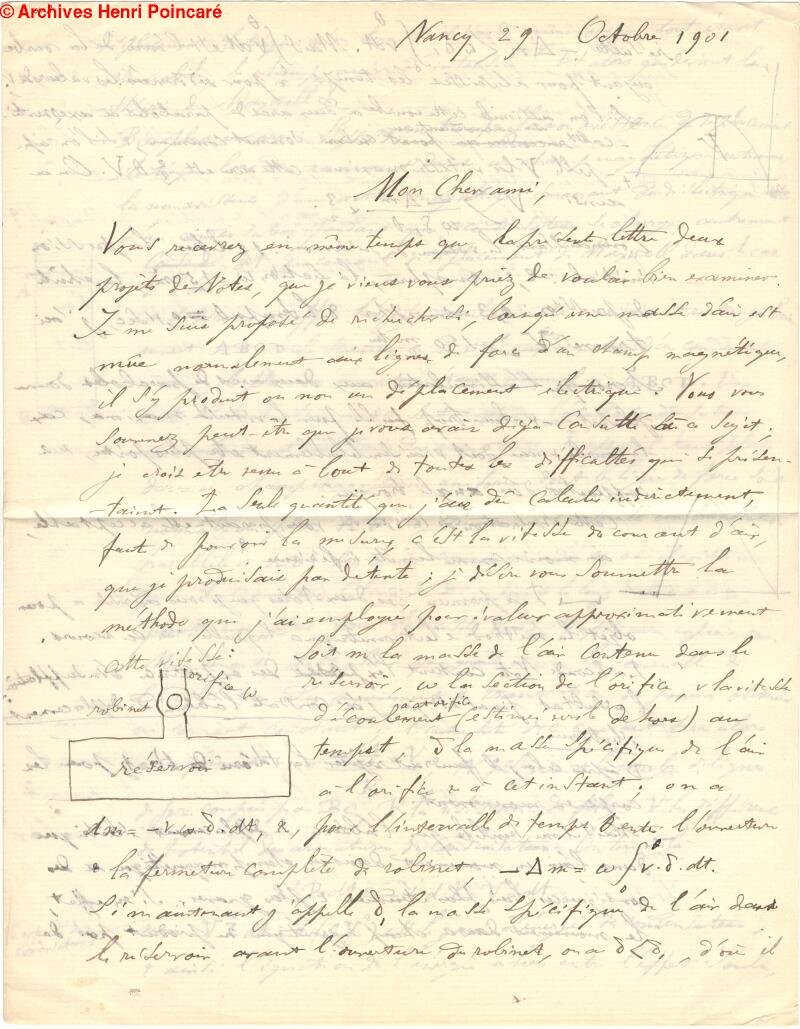 © Archives Henri Poincaré
Nancy 29 Octobre 1901
Mon Cher ami,
Vous recevrez en même temps que la présente lettre deux
projets de Notes, que je viens vous prier de vouloir bien examiner.
Je me suis proposé de rechercher si, lorsqu'une masse d'air est
mûe normalement aux lignes de force d'un champ magnétique,
il s'y produit ou non un déplacement électrique. Vous vous
souvenez peut-être que je vous avais déjà consulté à ce sujet;
je crois être venu à bout de toutes les difficultés qui se présen-
-taient. La seule quantité que j'aie dû calculer indirectement,
faute de pouvoir la mesurer, c'est la vitesse du courant d'air,
que je produisais par détente; je désire vous soumettre la
méthode que j'ai employée pour évaluer approximativement
cette vitesse:
orifice ω
robinet
réservoir
Soit m la masse de l'air contenu dans le
réservoir, ω la section de l'orifice, v la vitesse
d'écoulement à cet orifice (estimée vers le dehors) au
temps t, δ la masse spécifique de l'air
à l'orifice et à cet instant; on a
dm = -v ω δ. dt, &, pour l'intervalle de temps θ entre l'ouverture
& la fermeture complète du robinet, -Δm = ω ∫₀^θ v. δ. dt.
Si maintenant j'appelle δ₁ la masse spécifique de l'air dans
le réservoir avant l'ouverture du robinet, on a δ < δ₁, d'où il